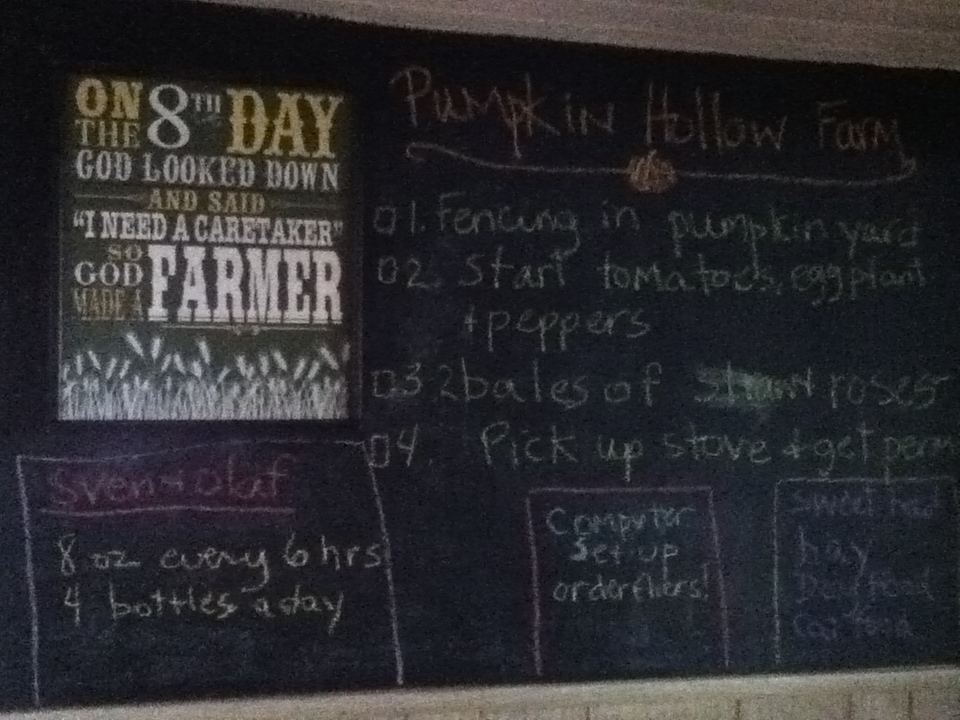 ON THE 8TH DAY
GOD LOOKED DOWN
AND SAID
"I NEED A CARETAKER"
SO GOD MADE A FARMER
Pumpkin Hollow Farm
01. Fencing in pumpkin yard
02. Start tomatoes, eggplant
+ peppers
03. 2 bales of straw roses
04. Pick up stove + get
Sven + Olaf
8 oz every 6 hrs
4 bottles a day
Computer
Set up
order fliers!
Sweet
hay
Dog food
Cat food